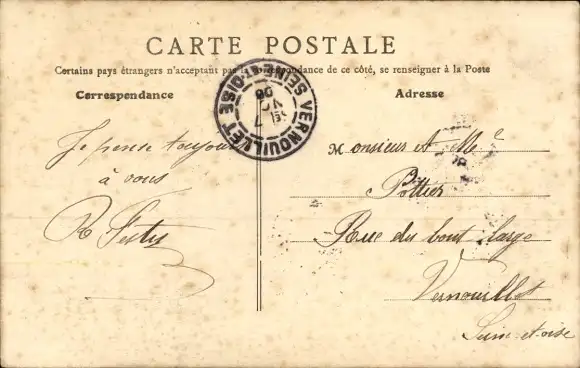 CARTE POSTALE
Certains pays étrangers n'acceptant pas la correspondance de ce côté, se renseigner à la Poste
Correspondance
Adresse
VERNOUILLET
SEINE-ET-OISE
7
06
Je pense toujours
à vous
R
Monsieur et Me
Pottier
Rue du bout large
Vernouillet
Seine-et-oise